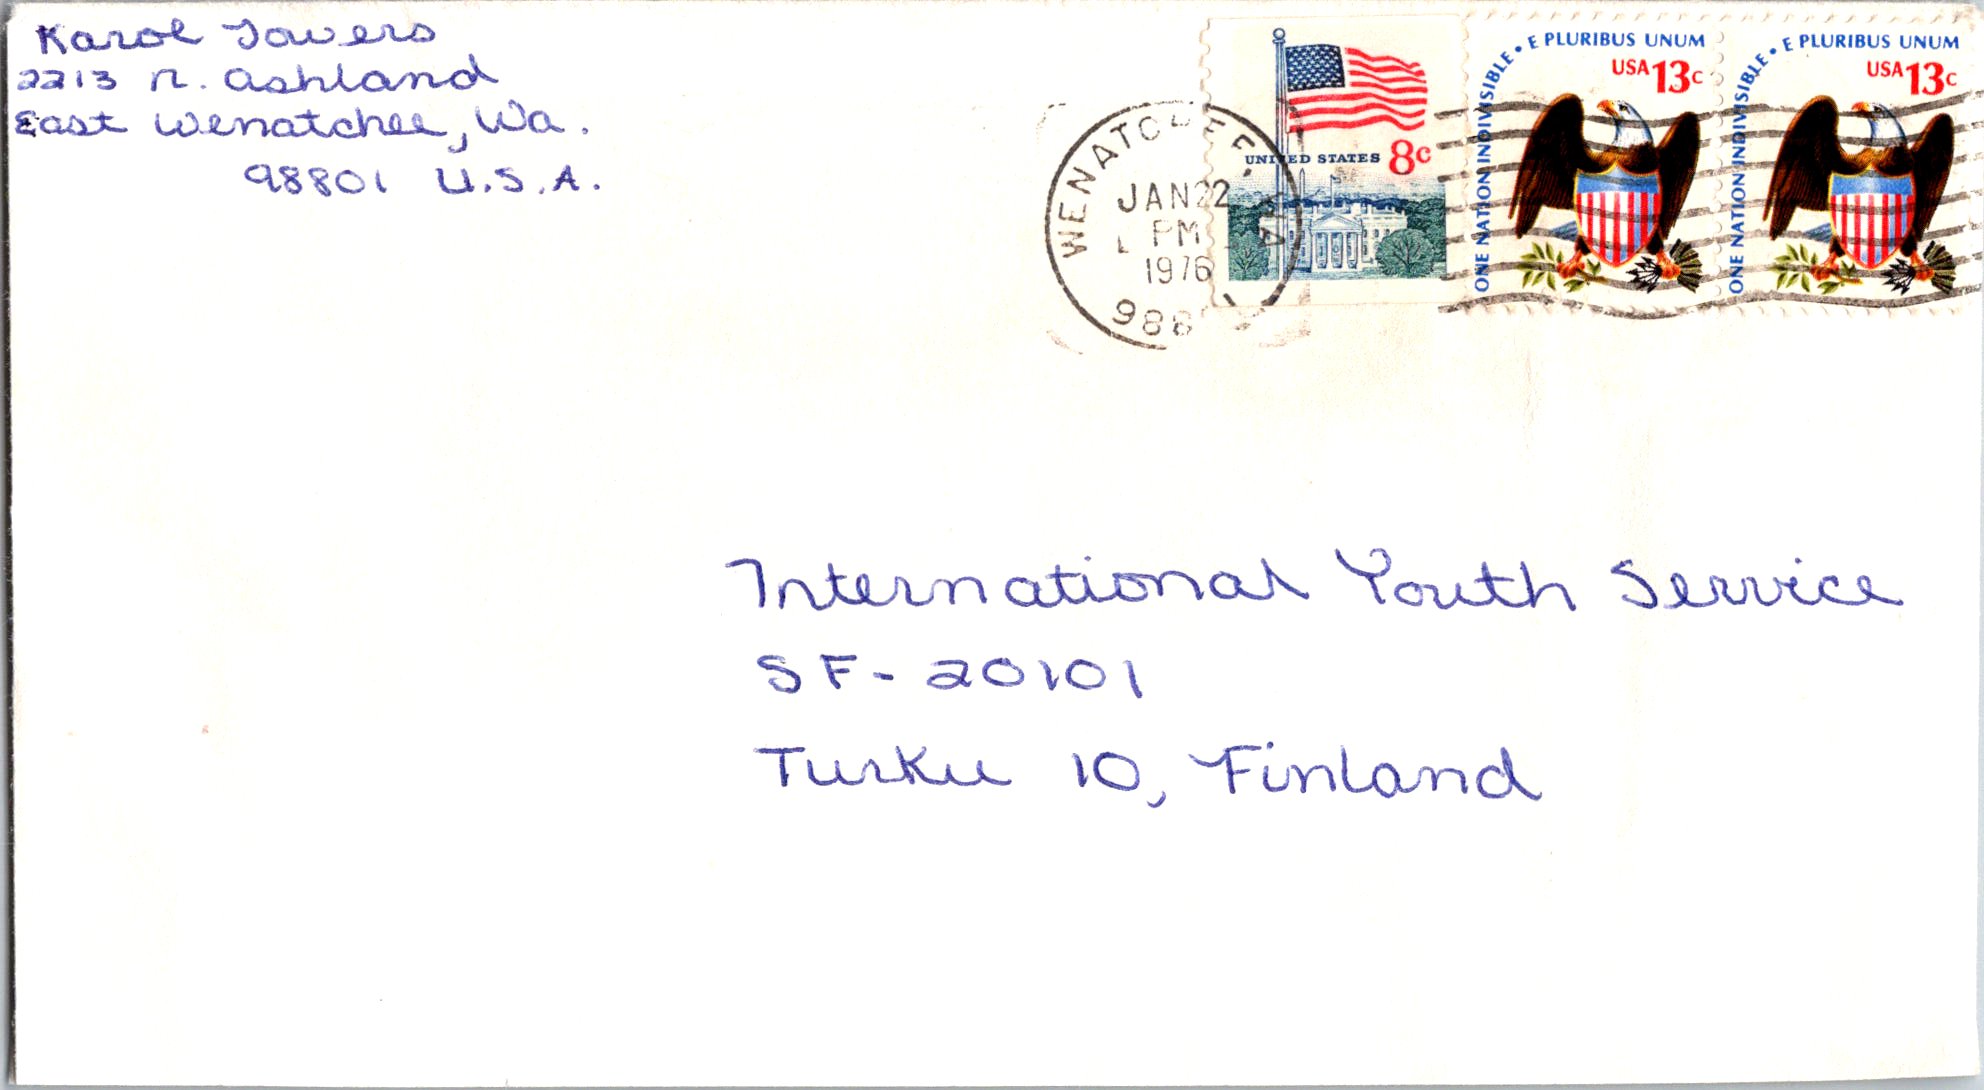 Karol Towers
2213 N. Ashland
East Wenatchee, Wa.
98801 U.S.A.
WENATCHEE, WA
JAN 22
PM
1976
988
UNITED STATES 8c
ONE NATION INDIVISIBLE • E PLURIBUS UNUM
USA 13c
ONE NATION INDIVISIBLE • E PLURIBUS UNUM
USA 13c
International Youth Service
SF-20101
Turku 10, Finland